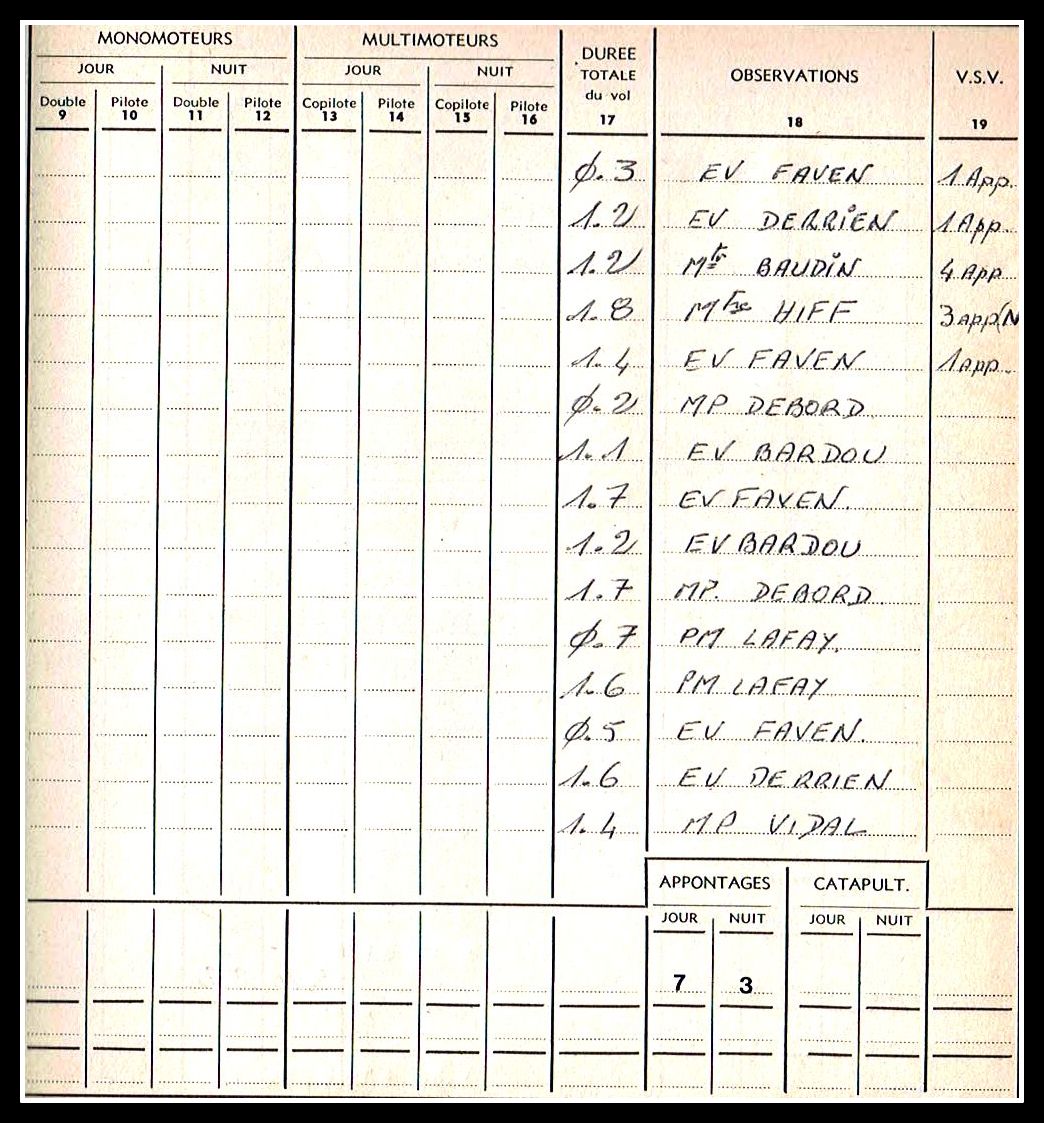 MONOMOTEURS MULTIMOTEURS DUREE TOTALE du vol OBSERVATIONS V.S.V.
JOUR NUIT JOUR NUIT
Double Pilote Double Pilote Copilote Pilote Copilote Pilote
9 10 11 12 13 14 15 16 17 18 19
Ø.3 EV FAVEN 1 App.
1.2 EV DERRIEN 1 App
1.2 Mtr BAUDIN 4 App
1.8 HIFF 3 APP(N
1.4 EV FAVEN 1 App.
Ø.2 MP DEBORD
1.1 EV BARDOU
1.7 EV FAVEN.
1.2 EV BARDOU
1.7 MP. DEBORD
Ø.7 PM LAFAY.
1.6 PM LAFAY
Ø.5 EV FAVEN.
1.6 EV DERRIEN
1.4 MP VIDAL
APPONTAGES CATAPULT.
JOUR NUIT JOUR NUIT
7 3